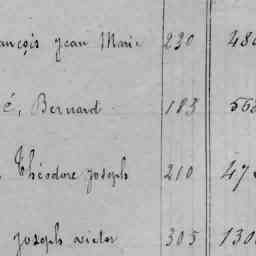 ançois Jean Marie 230 480
é, Bernard 183 568
Théodore Joseph 210 47
Joseph victor 305 130